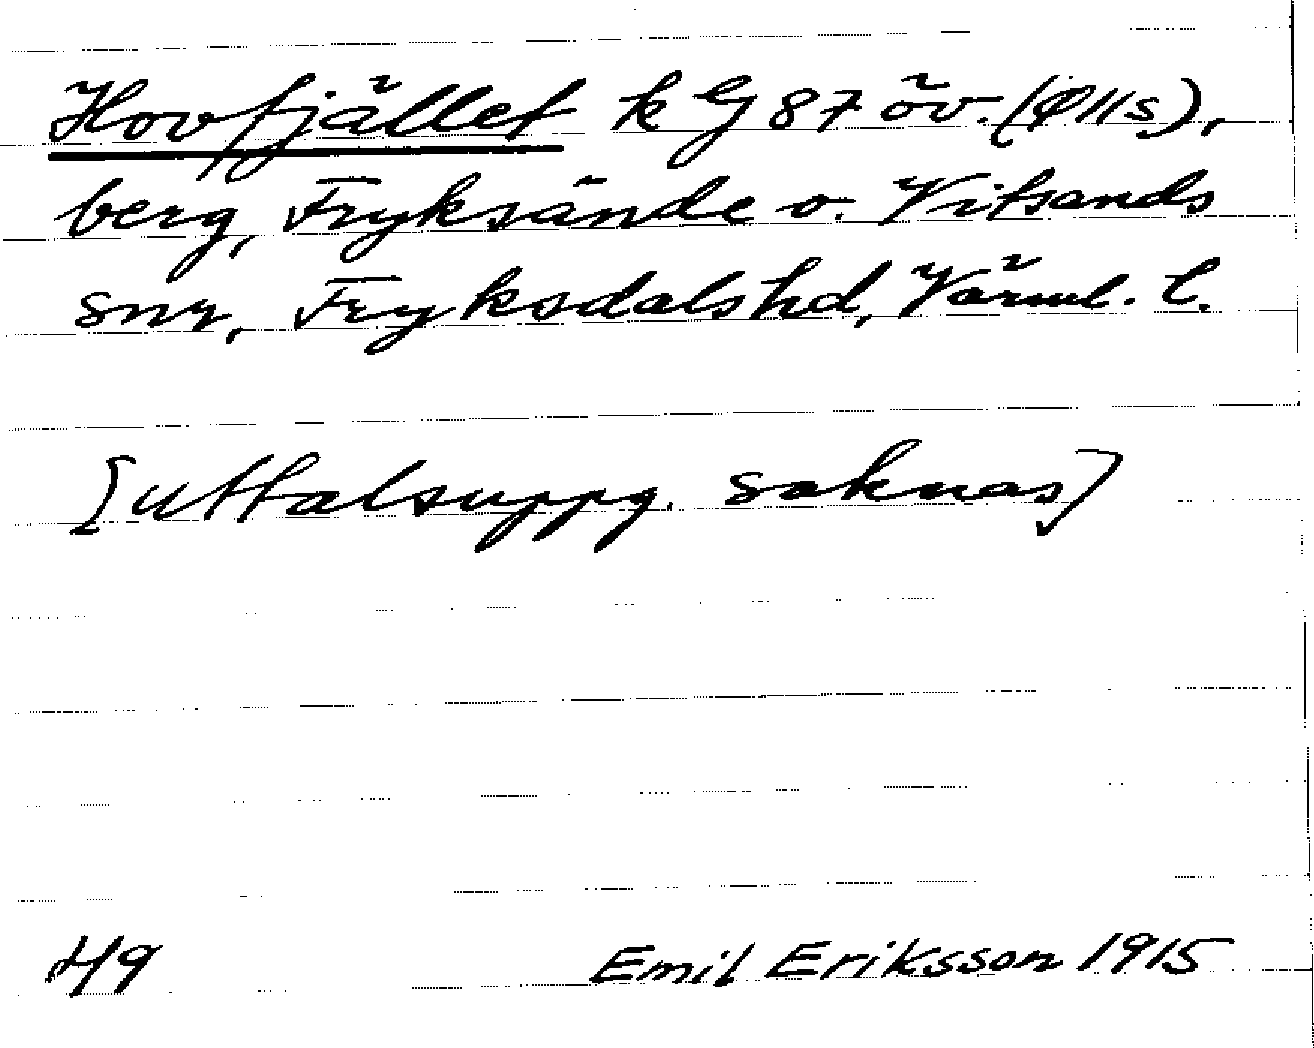 Hovfjället k G 87 öv. (Ø 11s),
berg, Fryksände o. Vitsands
snr, Fryksdalshd, Värml. l.
[uttalsuppg. saknas]
49 Emil Eriksson 1915